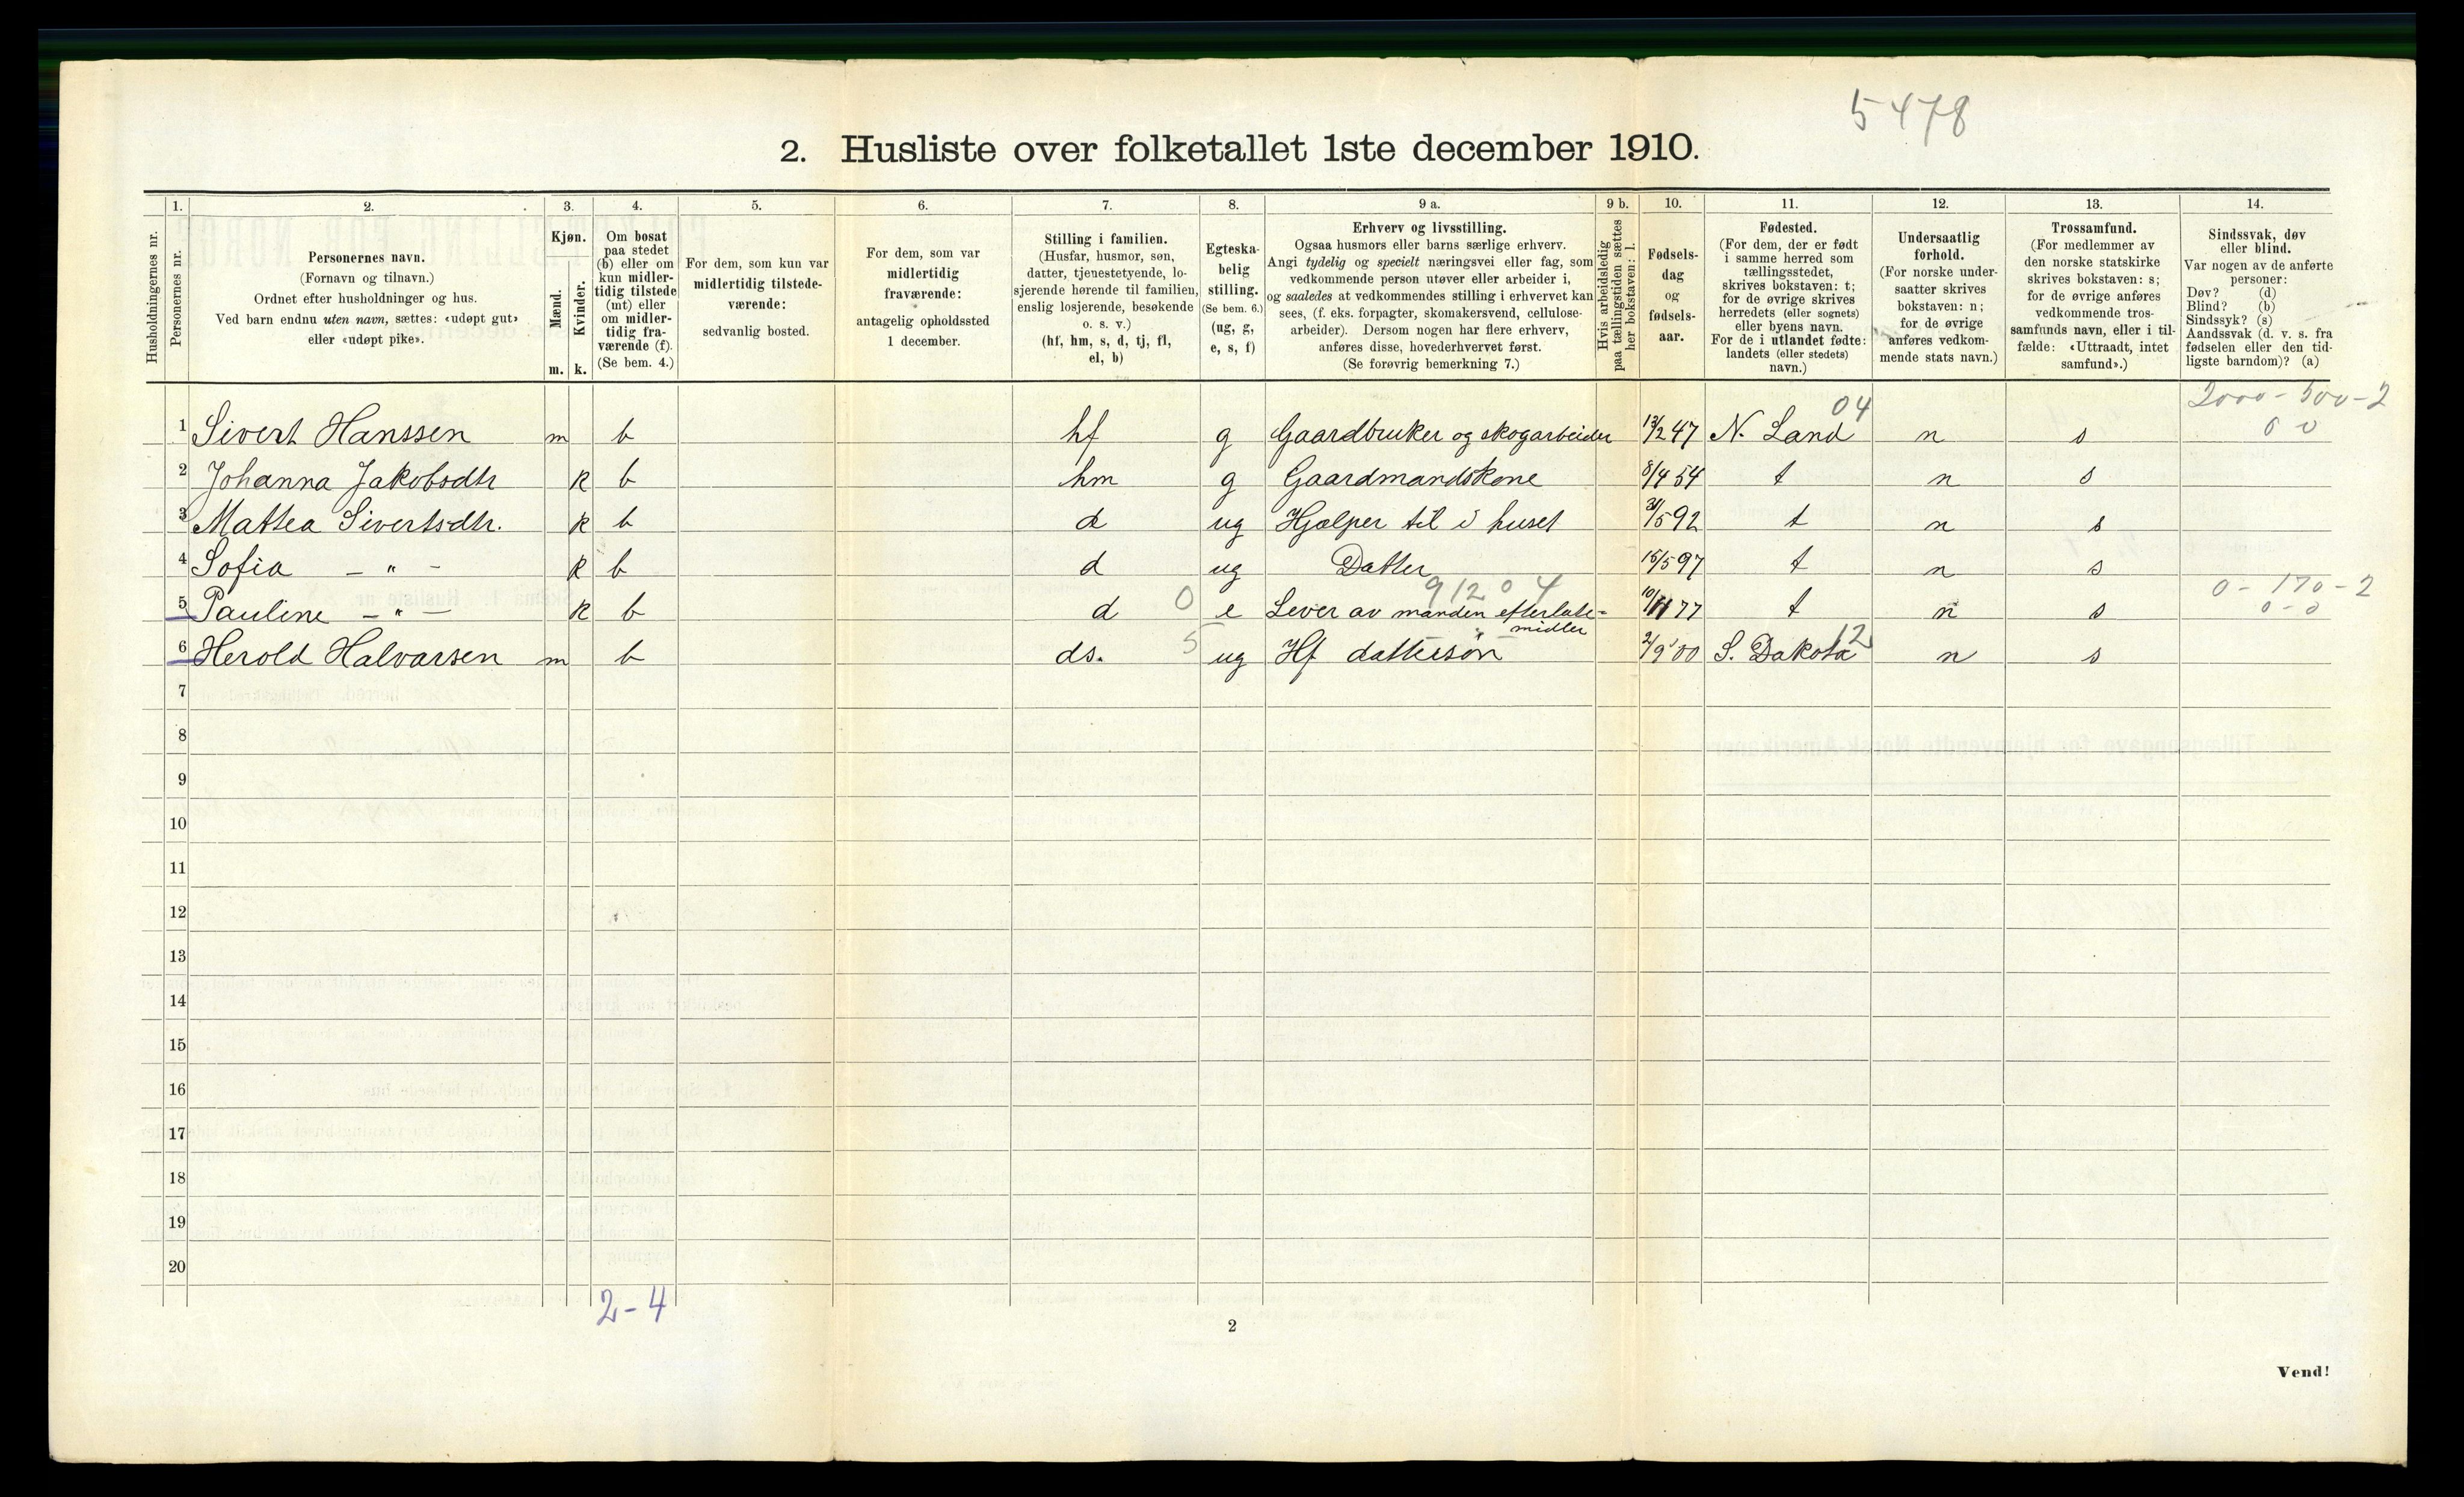 5478
2. Husliste over folketallet 1ste december 1910.
Husholdningernes nr.
1.
Personernes nr.
2.
Personernes navn.
(Fornavn og tilnavn.)
Ordnet efter husholdninger og hus.
Ved barn endnu uten navn, sættes: «udøpt gut»
eller «udøpt pike».
3.
Kjøn.
Mænd.
Kvinder.
m. k.
4.
Om bosat
paa stedet
(b) eller om
kun midler-
tidig tilstede
(mt) eller
om midler-
tidig fra-
værende (f).
(Se bem. 4.)
5.
For dem, som kun var
midlertidig tilstede-
værende:
sedvanlig bosted.
6.
For dem, som var
midlertidig
fraværende:
antagelig opholdssted
1 december.
7.
Stilling i familien.
(Husfar, husmor, søn,
datter, tjenestetyende, lo-
sjerende hørende til familien,
enslig losjerende, besøkende
o. s. v.)
(hf, hm, s, d, tj, fl,
el, b)
8.
Egteska-
belig
stilling.
(Se bem. 6.)
(ug, g,
e, s, f)
9 a.
Erhverv og livsstilling.
Ogsaa husmors eller barns særlige erhverv.
Angi tydelig og specielt næringsvei eller fag, som
vedkommende person utøver eller arbeider i,
og saaledes at vedkommendes stilling i erhvervet kan
sees, (f. eks. forpagter, skomakersvend, cellulose-
arbeider). Dersom nogen har flere erhverv,
anføres disse, hovederhvervet først.
(Se forøvrig bemerkning 7.)
9 b.
Hvis arbeidsledig
paa tællingstiden sættes
her bokstaven: l.
10.
Fødsels-
dag
og
fødsels-
aar.
11.
Fødested.
(For dem, der er født
i samme herred som
tællingsstedet,
skrives bokstaven: t;
for de øvrige skrives
herredets (eller sognets)
eller byens navn.
For de i utlandet fødte:
landets (eller stedets)
navn.)
12.
Undersaatlig
forhold.
(For norske under-
saatter skrives
bokstaven: n;
for de øvrige
anføres vedkom-
mende stats navn.)
13.
Trossamfund.
(For medlemmer av
den norske statskirke
skrives bokstaven: s;
for de øvrige anføres
vedkommende tros-
samfunds navn, eller i til-
fælde: «Uttraadt, intet
samfund».)
14.
Sindssvak, døv
eller blind.
Var nogen av de anførte
personer:
Døv? (d)
Blind? (b)
Sindssyk? (s)
Aandssvak (d. v. s. fra
fødselen eller den tid-
ligste barndom)? (a)
04 2000-500-2
1 Sivert Hanssen m b hf g Gaardbruker og skogarbeider 13/2 47 N. Land n s 0 0
2 Johanna Jakobsdtr k b hm g Gaardmandskone 8/4 54 t n s
3 Mattea Sivertsdtr. k b d ug Hjælper til i huset /5 92 t n s
4 Sofia – " – k b d ug Datter 15/5 97 t n s
91204 0-170-2
5 Pauline – " – k b d 0 e Lever av manden efterlate- 10/11 77 t n s 0-0
" midler
12
6 Herold Halvarsen m b ds. 5 ug Hf dattersøn 2/9 00 S. Dakota n s
7
8
9
10
11
12
13
14
15
16
17
18
19
20
2-4
2
Vend!